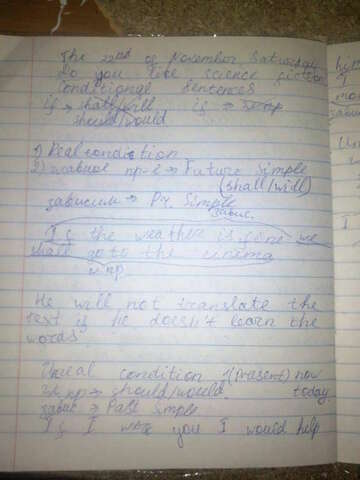 The 22nd of November Saturday
Do you like science fiction
Conditional Sentences
if → shall/will if =
should/would
1) Real condition
2) главное пр-е → Future Simple
(shall/will)
зависимое → Pr. Simple
завис.
If the weather is fine we
shall go to the cinema
He will not translate the
text if he doesn't learn the
words
Unreal condition 1(Present) now
should/would today
завис → Past Simple
If I were you I would help